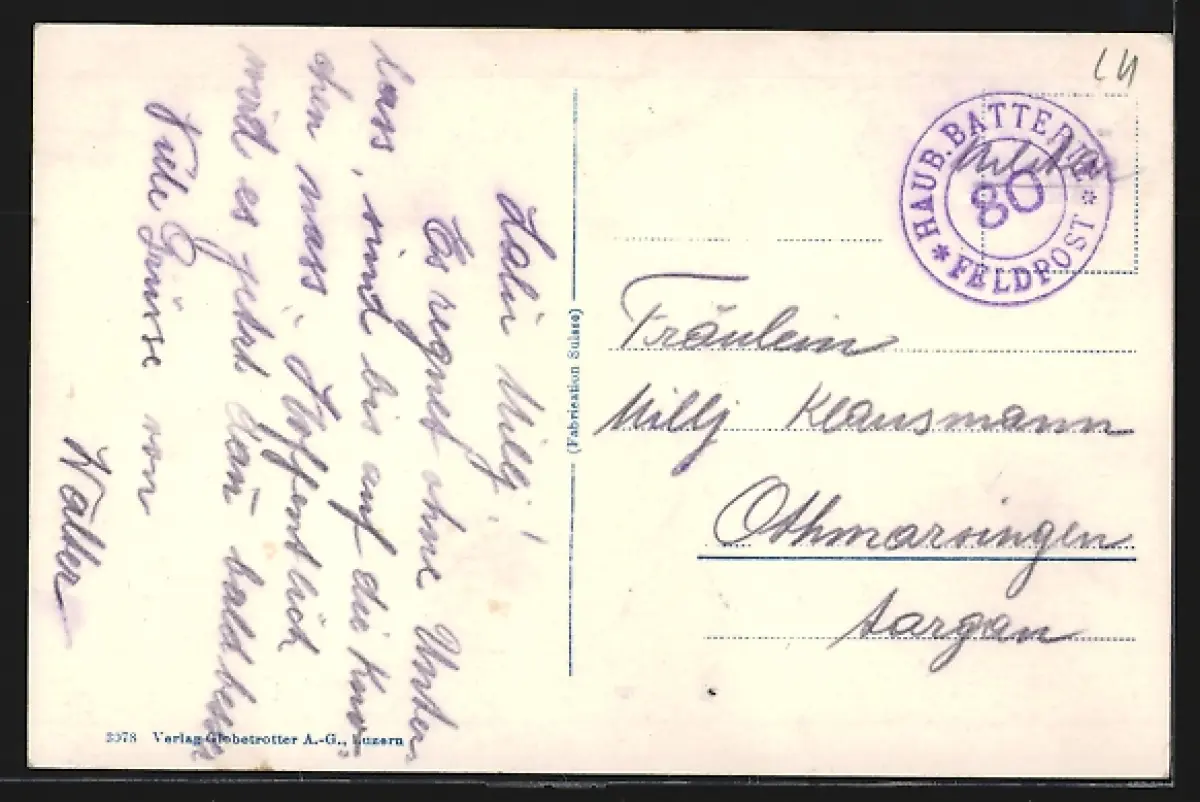 Habe Milly!
Es regnet ohne Unter-
lass, sind bis auf die Kno-
chen nass. Hoffentlich
wird es jetzt dañ bald besser
Viele Grüsse von
Walter
3978 Verlag Globetrotter A.-G., Luzern
(Fabrication Suisse)
HAUB. BATTERIE
80
* FELDPOST *
Militär
Fräulein
Milly Klausmann
Othmarsingen
Aargau